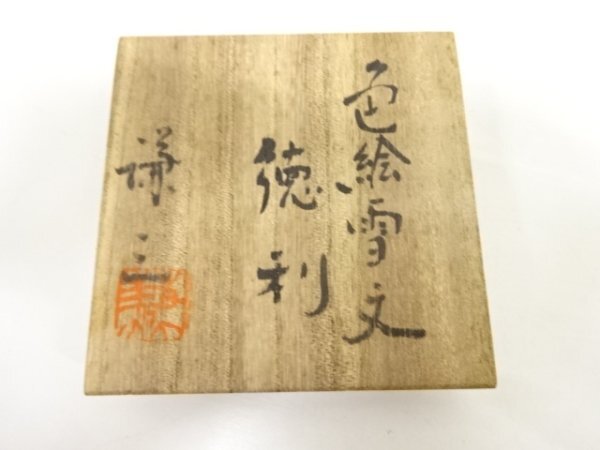 色絵雪文
徳利
謙三